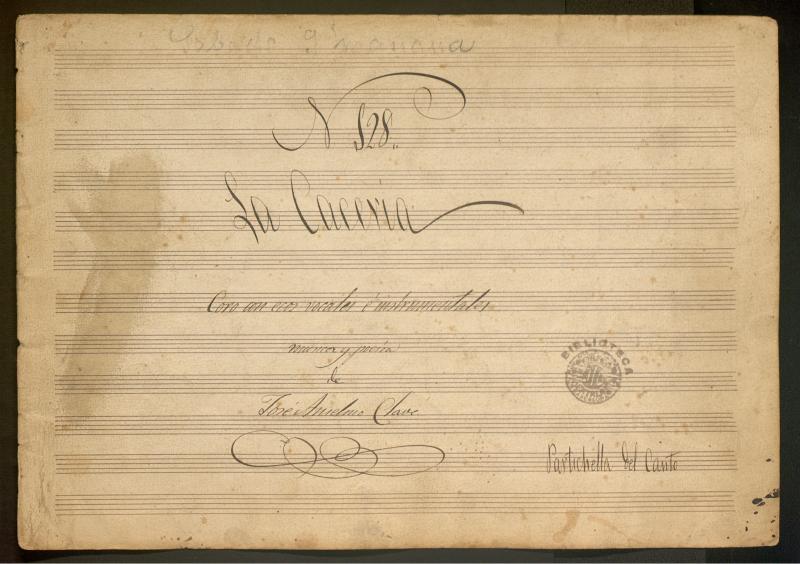 Sabado 9 mañana
N 128.
La Caceria
Coro con ecos vocales é instrumentales
musica y poesia
de
José Anselmo Clavé
BIBLIOTECA
Partichella del Canto